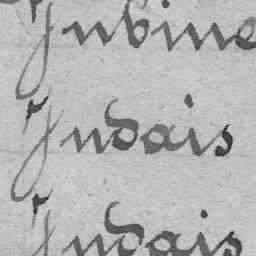 Jubine
Judais
Judais